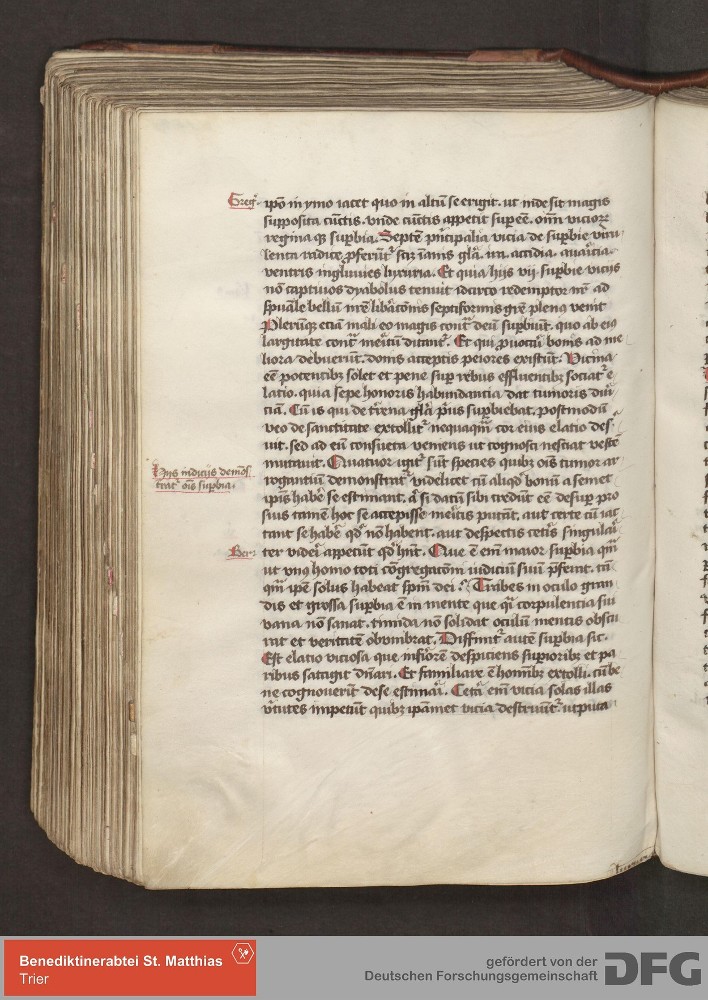 Greg.
ipo in ymo iacet quo in altū se erigit. ut inde sit magis
supposita cūctis. vnde cūctis appetit sup eē. om̄ vicioꝝ
regina qꝫ supbia. Septē pncipalia vicia de supbie viru
lenta radice pferūt scꝫ inanis gla. ira. accidia. auaricia.
ventris ingluuies luxuria. Et quia hijs vij supbie vicijs
nō captiuos dyabolus tenuit idcirco redemptor nr ad
spuale bellū nre libatōnis septiformis grē plenꝰ venit
Plerūqꝫ etiam mali eo magis cont deū supbiūt. quo ab eiꝰ
largitate cont meritū ditant. Et qui puocti bonis ad me
liora debuerūt. donis acceptis peiores existūt. Vicina
eē potentibꝫ solet et pene sup rebus effluentibꝫ sociat e
latio. quia sepe honoris habundantia dat tumoris
ciam. Cū is qui de trena gla pus supbiebat. postmodū
vo de sanctitate extollit nequaqm cor eius elatio des
uit. sed ad eū consueta veniens ut cognosci nesciat veste
mutauit. Quatuor igit sūt species quibꝫ oīs tumor ar
rogantiū demonstrat videlicet cū aliqd bonū a semet
ipis habe se estimant. aut si datū sibi credūt eē desup pro
suis tamē hoc se accepisse meritis putāt. aut certe cū iac
tant se habe qd nō habent. aut despectis cetis singulari
ter videri appetūt qd hnt. Que ē em maior supbia qm
ut vnꝰ homo toti congregatōni iudiciū suū pferat. tn
qm ipe solus habeat spm dei. Trabes in oculo gran
dis et grossa supbia ē in mente que qi corpulentia sui
vana nō sanat. tumida nō solidat oculū mentis obscu
rat et veritatē obumbrat. Diffinit autē supbia sic.
Est elatio viciosa que inferiorē despiciens supioribꝫ et pa
ribus satagit dnari. Et familiare ē homībꝫ extolli. cū be
ne cognouerīt de se estimari. Cetera em vicia solas illas
vtutes impetūt quibꝫ ipamet vicia destruūt. ut puta
Hijs indicijs demōs
trat oīs supbia.
Ber.
Benediktinerabtei St. Matthias
Trier
gefördert von der
Deutschen Forschungsgemeinschaft
DFG